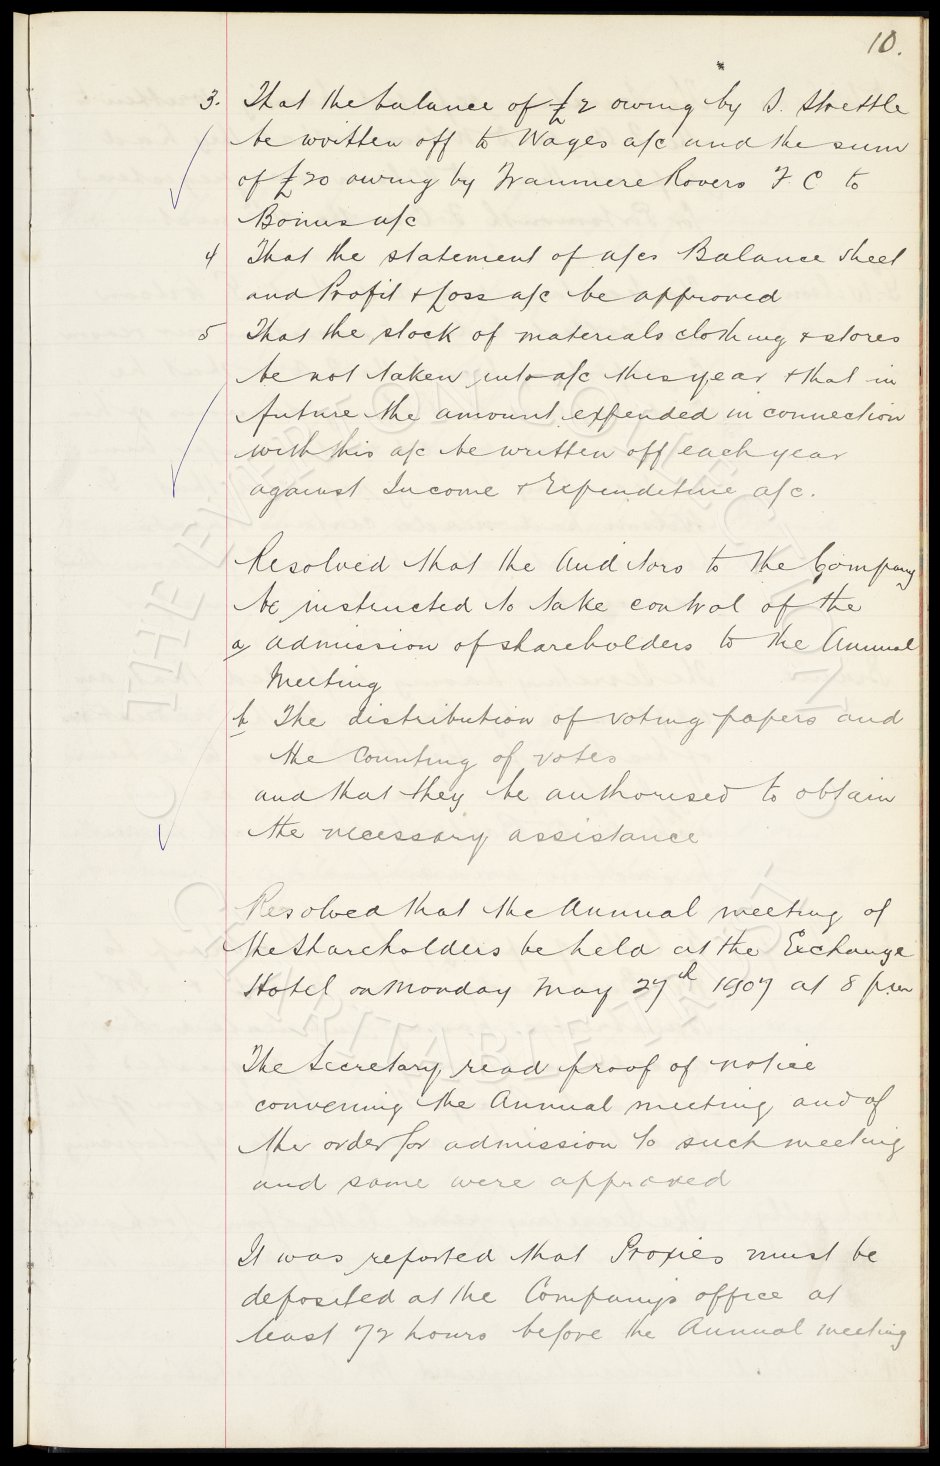 10.
3. That the balance of £2 owing by S. Strettle
be written off to Wages a/c and the sum
of £20 owing by Tranmere Rovers F C to
Bonus a/c
4 That the statement of a/cs Balance Sheet
and Profit & Loss a/c be approved
5 That the stock of materials clothing & stores
be not taken into a/c this year & that in
future the amount expended in connection
with this a/c be written off each year
against Income & Expenditure a/c.
Resolved that the Auditors to the Company
be instructed to take control of the
a admission of shareholders to the Annual
Meeting
b The distribution of voting papers and
the counting of votes
and that they be authorised to obtain
the necessary assistance
Resolved that the Annual meeting of
the Shareholders be held at the Exchange
Hotel on Monday May 27th 1907 at 8 pm
The Secretary read proof of notice
convening the Annual meeting and of
the order for admission to such meeting
and same were approved
It was reported that Proxies must be
deposited at the Company's office at
least 72 hours before the Annual meeting
THE EVERTON COLLECTION
CHARITABLE TRUST